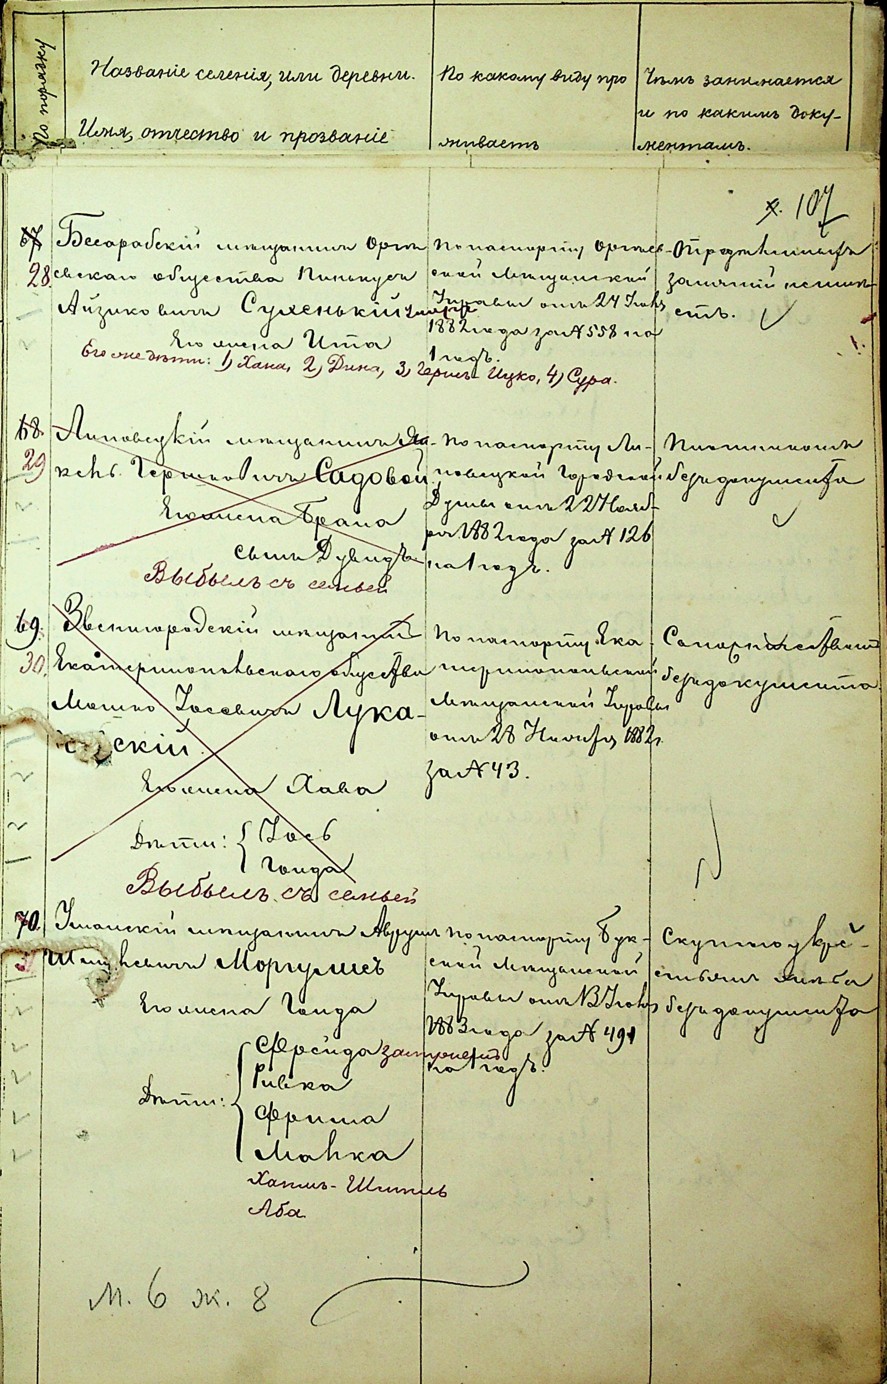 По порядку
Названіе селенія, или деревни.
Имя, отчество и прозваніе
По какому виду про
живаетъ
Чѣмъ занимается
и по какимъ доку-
ментамъ.
107
67
28.
Бессарабскій мещанинъ Оргѣ
евскаго общества Пинькусъ
Айзиковичъ Сухенькій умеръ
Его жена Ита
Его же дѣти: 1) Хана, 2) Дина, 3) Гершъ-Ицко, 4) Сура.
По паспорту Оргѣев-
ской Мещанской
Управы отъ 24 Іюня
1882 года за № 558 на
1 годъ.
занятій
68.
29
Липовецкій мещанинъ
Гершковичъ Садовой
Его жена Брана
сынъ Дувидъ
Выбылъ съ семьей
По паспорту Ли-
повецкой Городской
Думы отъ 22 Нояб-
ря 1882 года за № 126
на 1 годъ.
безъ документа
69.
30.
Звенигородскій мещанинъ
Екатеринопольскаго общества
Мошко Іосевичъ Лука-
скій.
Его жена Хава
Дѣти: Іось
Гонда
Выбылъ съ семьей
По паспорту Ека-
теринопольской
Мещанской Управы
отъ 28 1882 г.
за № 43.
безъ документа
70.
Уманскій мещанинъ Аврумъ
Моргулисъ
Его жена Гонда
Дѣти:
Фрейда
Ривка
Фрима
Манка
Хаимъ-Шмиль
Аба
По паспорту Бук-
ской Мещанской
Управы отъ 13 Іюня
1883 года за № 491
на 1 годъ.
Скупкою у кре-
стьянъ хлѣба
безъ документа
М. 6 ж. 8